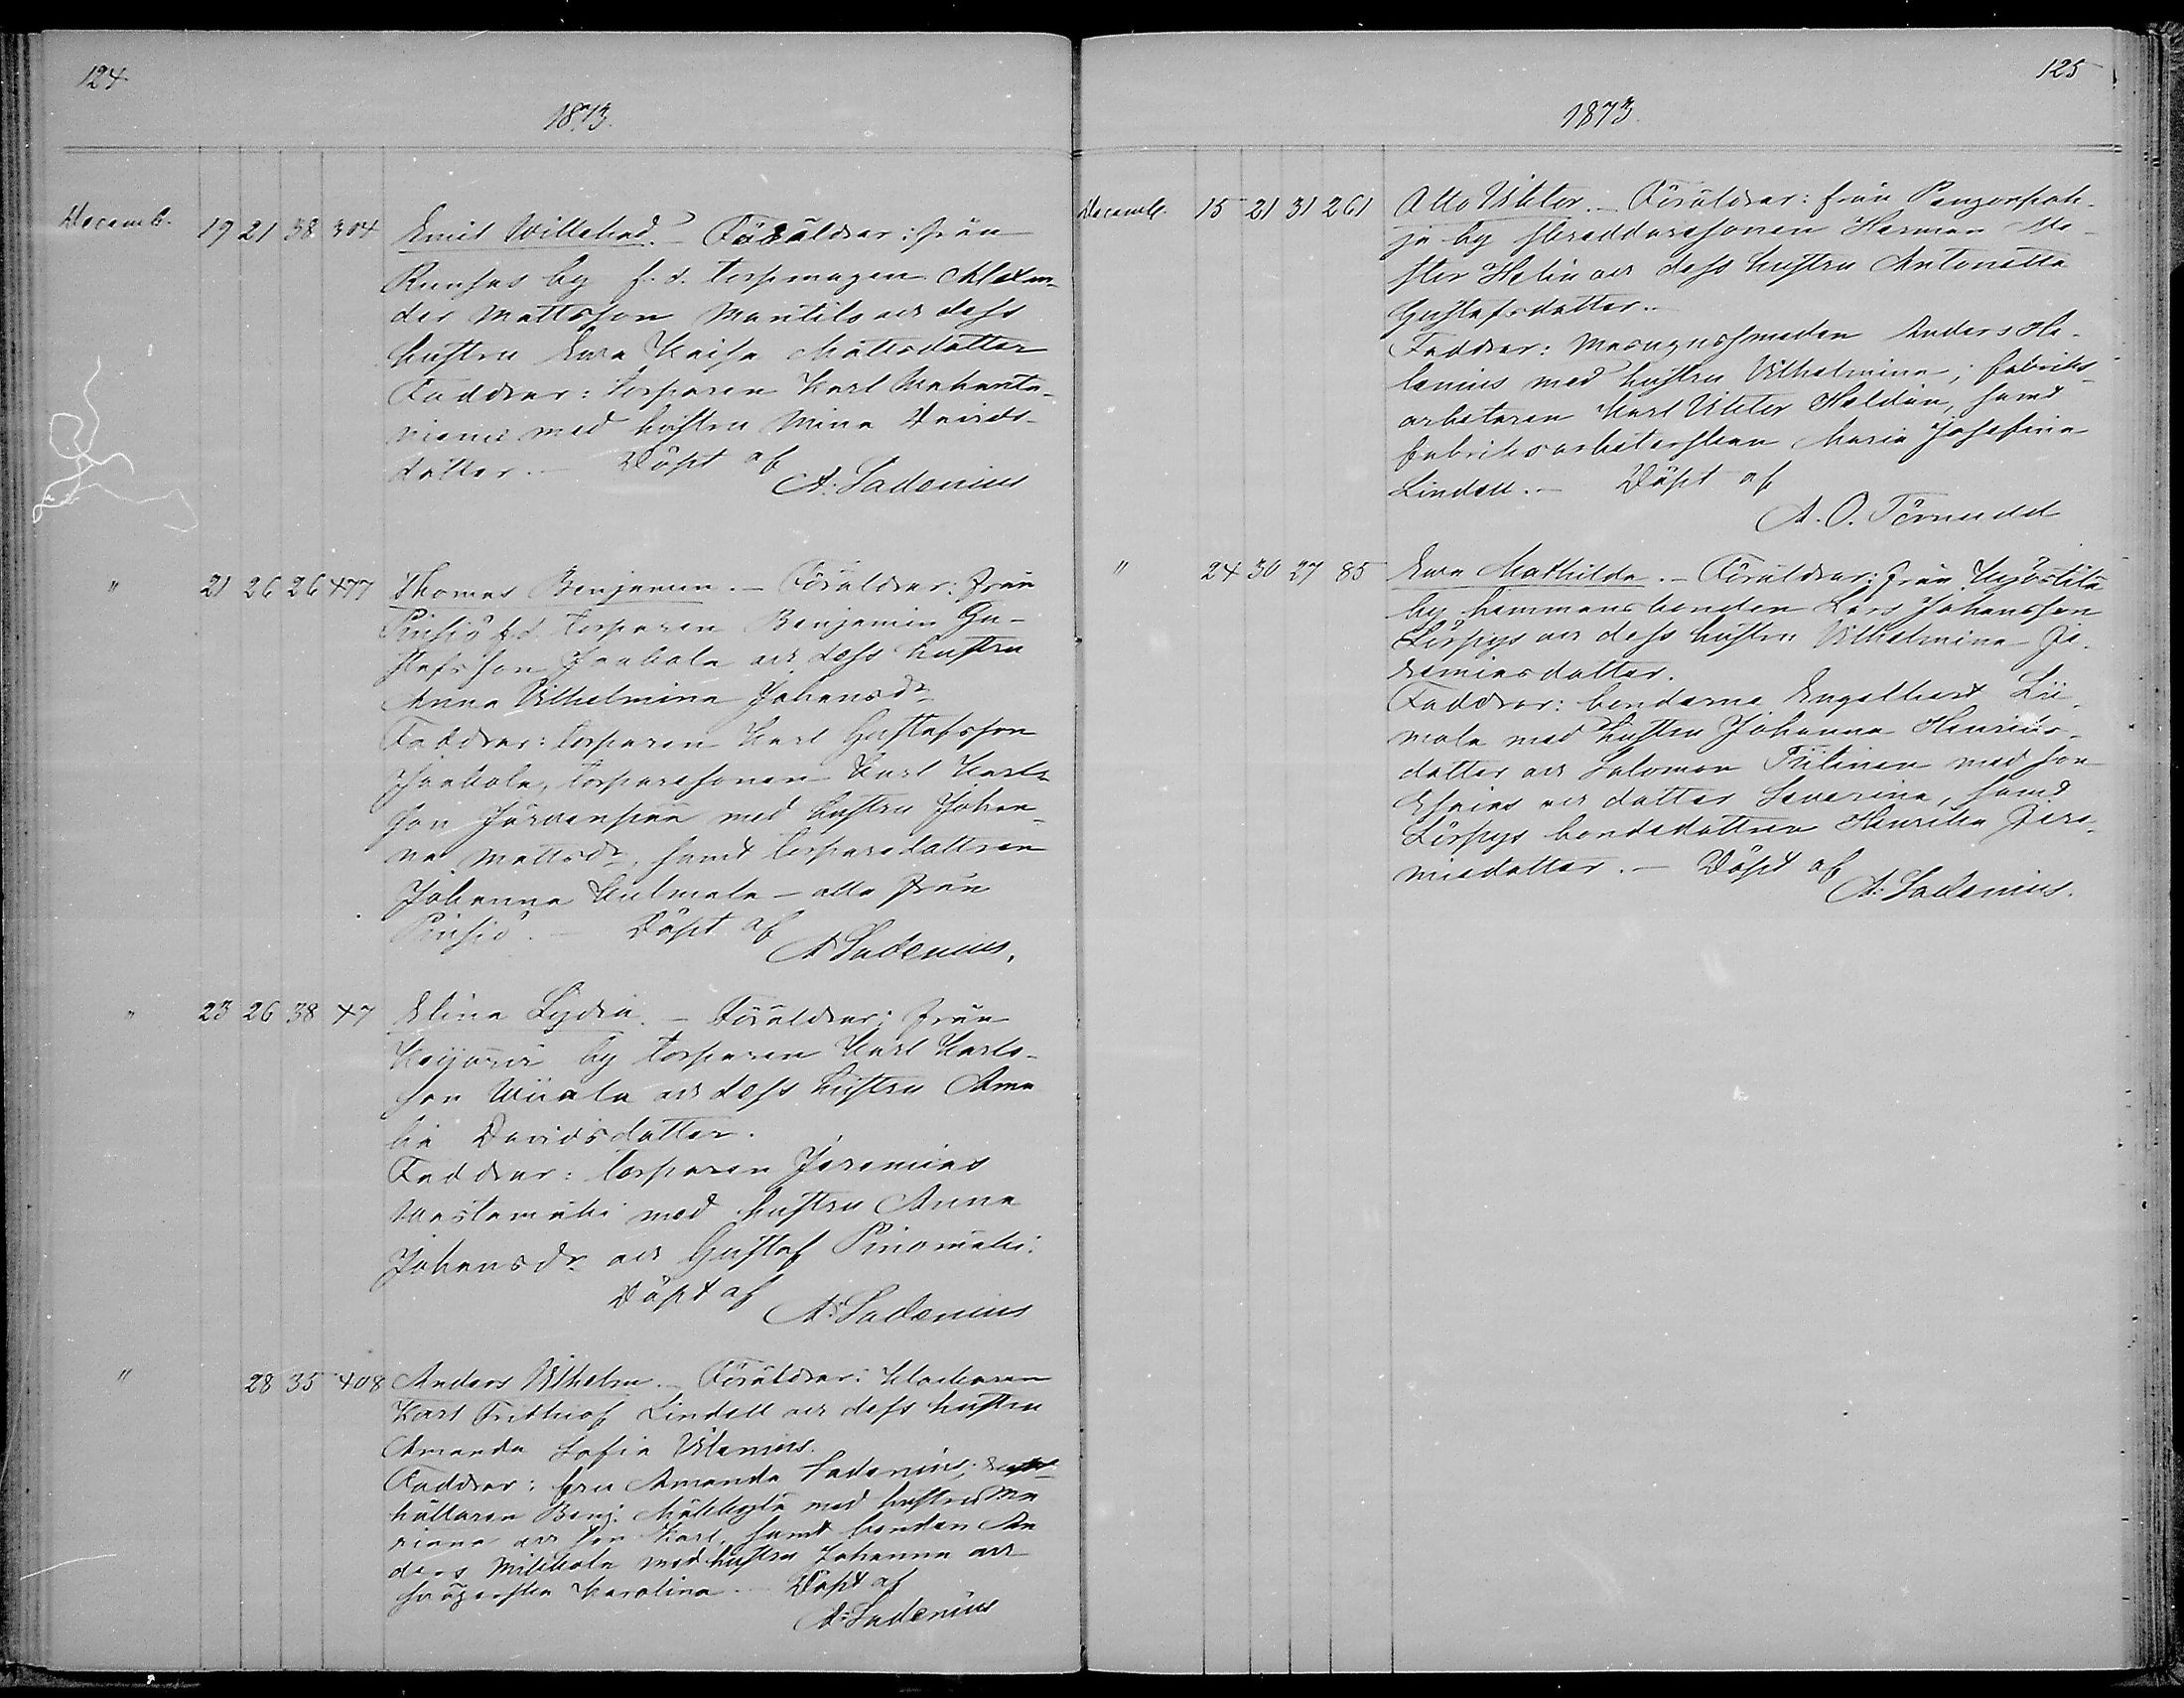 124
1873.
Decemb. 19 21 38 304 Emil Willehad. – Föräldrar: från
Runsas by f. d. torpmagen Alexan-
der Mattsson Mantila och dess
hustru Ewa Kaisa Mattsdotter
Faddrar: torparen Karl Mahanta-
niemi med hustru Mina Davids-
dotter. – Döpt af
A: Ladenius
" 21 26 26 477 Thomas Benjamin. – Föräldrar: från
Pinsiö f.d. torparen Benjamin Gu-
stafsson Jaakola och dess hustru
Anna Vilhelmina Johansdr
Faddrar: torparen Karl Gustafsson
Jaakola, torparesonen Karl Karls-
son Järvensivu med hustru Johan-
na Mattsdr, samt torparedottren
Johanna Kulmala – alla från
Pinsiö. – Döpt af
A Ladenius.
" 23 26 38 47 Elina Lydia. – Föräldrar: från
by torparen Karl Karls-
son Uciala och dess hustru Ama
lia Davidsdotter.
Faddrar: torparen Jeremias
Vastamäki med hustru Anna
Johansdr och Gustaf Pinomäki.
Döpt af
A: Ladenius
" 28 35 408 Anders Vilhelm. – Föräldrar: klockaren
Karl Frithiof Lindell och dess hustru
Amanda Sofia Vilenius.
Faddrar: fru Amanda Ladenius,
hållaren Benj: Mälkylä med hustru Ma
riana och son Karl, samt bonden An
ders Mikkola med hustru Johanna och
svägerska Karolina. – Döpt af
A: Ladenius
125
1873.
Decemb. 15 21 31 261 Otto Viktor. – Föräldrar: från Pengonpoh-
ja by skräddaresonen Herman
ster Helin och dess hustru Antonetta
Gustafsdotter. –
Faddrar: Masugnssmeden Anders He-
lenius med hustru Vilhelmina; fabriks-
arbetaren Karl Viktor Heldán, samt
fabriksarbeterskan Maria Josefina
Lindell. – Döpt af
A. O. Törnudd
" 24 30 27 85 Ewa Mathilda. – Föräldrar: från Kyöstilä
by hemmansbonden Lars Johansson
Lörpys och dess hustru Vilhelmina Je-
remiasdotter.
Faddrar: bönderne Engelbert Lii-
mola med hustru Johanna Henriks-
dotter och Salomon Tiilinen med son
Esaias och dotter Severina, samt
Lörpys bondedottren Henrika Jere-
miedotter. – Döpt af
A: Ladenius.